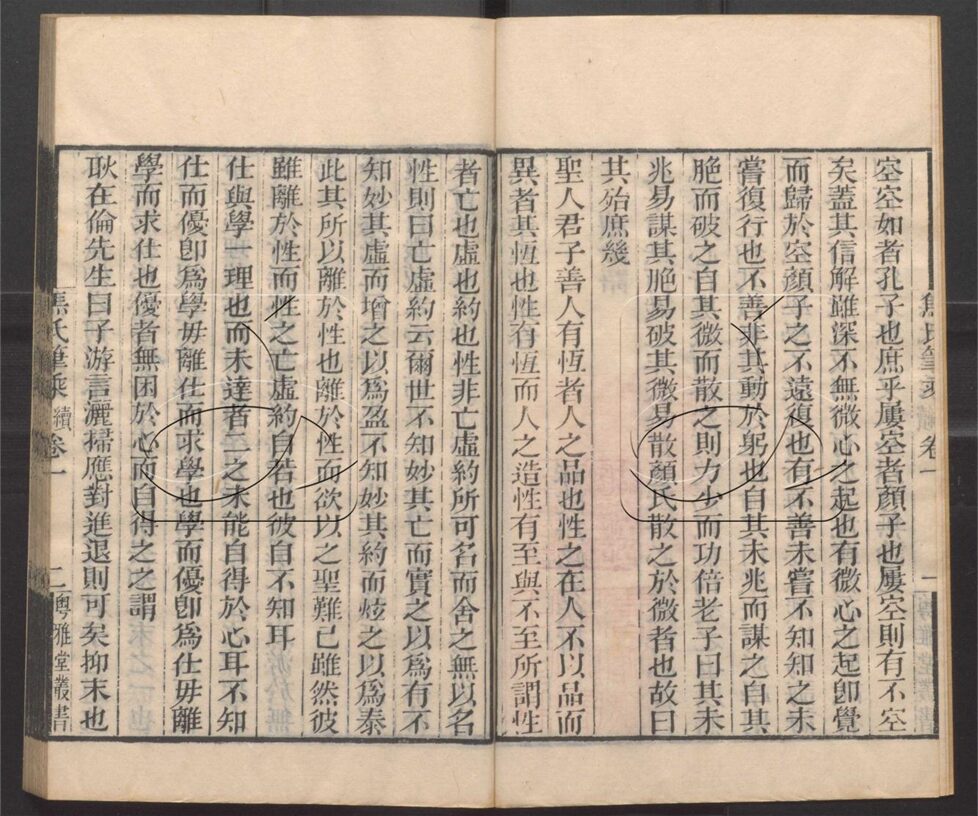 空空如者孔子也庶乎屢空者顏子也屢空則有不空
矣蓋其信解雖深不無微心之起也有微心之起卽覺
而歸於空顏子之不遠復也有不善未嘗不知知之未
嘗復行也不善非其動於躬也自其未兆而謀之自其
脃而破之自其微而散之則力少而功倍老子曰其未
兆易謀其脃易破其微易散顏氏散之於微者也故曰
其殆庶幾
聖人君子善人有恆者人之品也性之在人不以品而
異者其恆也性有恆而人之造性有至與不至所謂性
者亡也虛也約也性非亡虛約所可名而舍之無以名
性則曰亡虛約云爾世不知妙其亡而實之以爲有不
知妙其虛而增之以爲盈不知妙其約而炫之以爲泰
此其所以離於性也離於性而欲以之聖難已雖然彼
雖離於性而性之亡虛約自若也彼自不知耳
仕與學一理也而未達者二之未能自得於心耳不知
仕而優卽爲學毋離仕而求學也學而優卽爲仕毋離
學而求仕也優者無困於心而自得之之謂
耿在倫先生曰子游言灑掃應對進退則可矣抑末也
焦氏筆乘 續 卷一 二 粵雅堂叢書